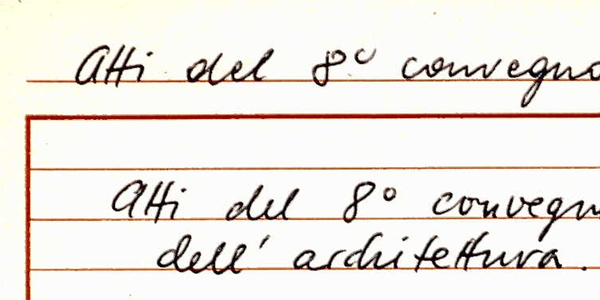 Atti del 8° convegno
Atti del 8° convegn
dell' architettura.